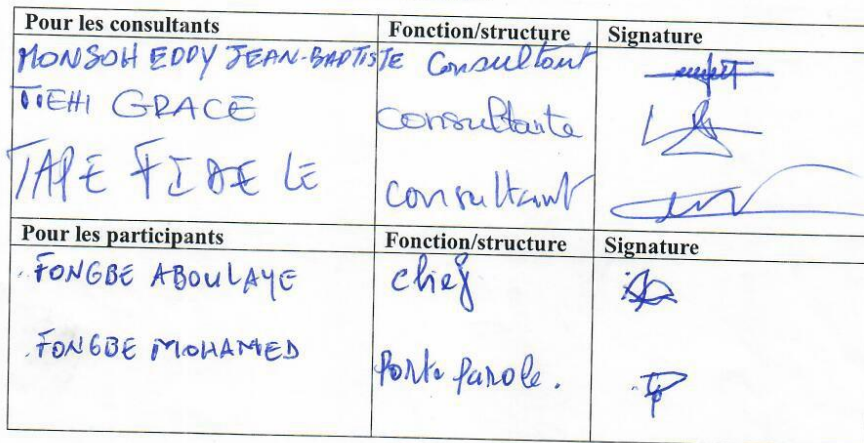 Pour les consultants Fonction/structure Signature
MONSOH EDDY JEAN-BAPTISTE Consultant
TIEHI GRACE Consultante
TAPE FIDELE Consultant
Pour les participants Fonction/structure Signature
FONGBE ABOULAYE chef
FONGBE MOHAMED Porte parole.